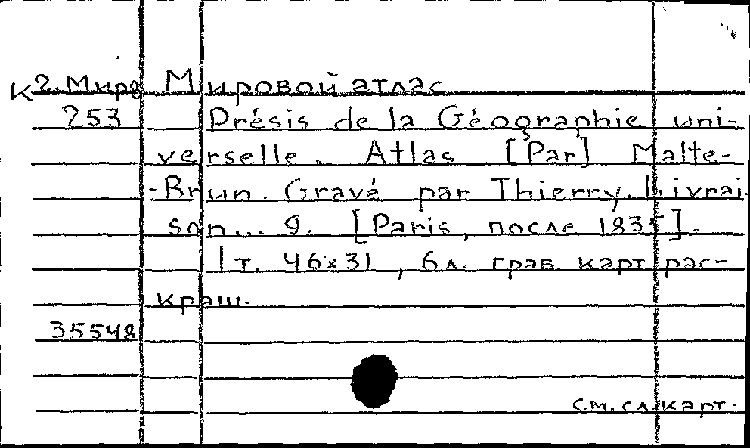 К 2. Мирв Мировой атлас
253 Présis de la Géographie uni-
verselle. Atlas [Par] Malte-
-Brun. Gravé par Thierry. Livrai
son... 9. [Paris, после 1835].
1 т. 46х31, 6 л. грав. карт рас-
краш.
35548
см. сл. карт.